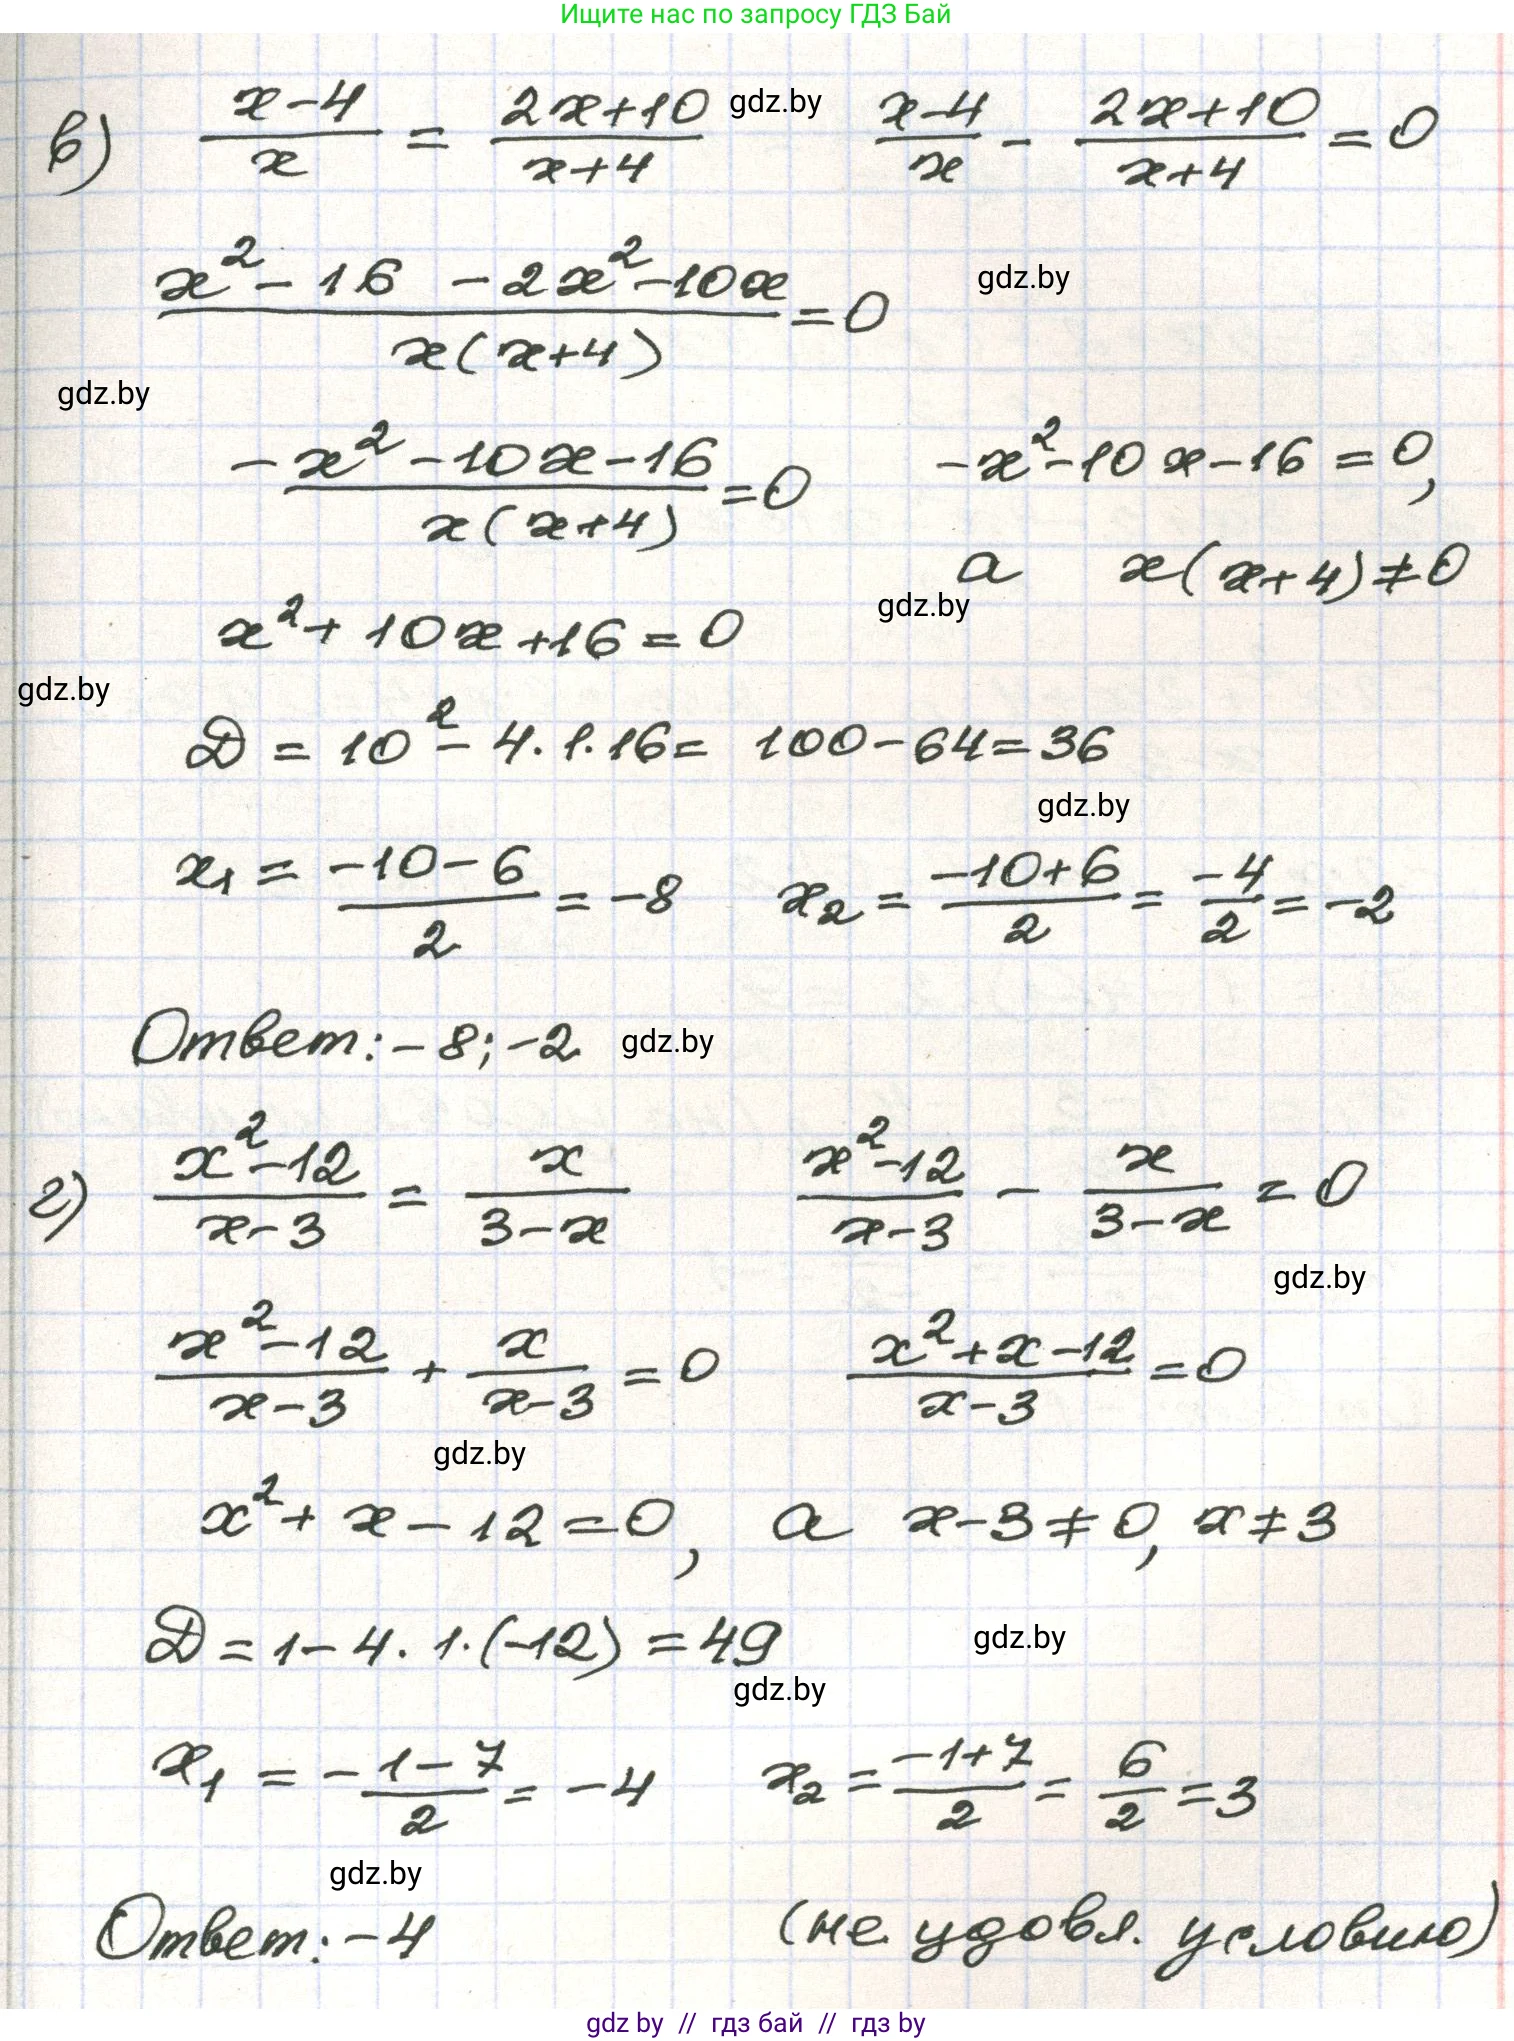 Ищите нас по запросу ГДЗ Бай
в) (x-4)/x = (2x+10)/(x+4) gdz.by (x-4)/x - (2x+10)/(x+4) = 0
(x²-16 -2x²-10x)/(x(x+4)) = 0 gdz.by
gdz.by
(-x²-10x-16)/(x(x+4)) = 0 -x²-10x-16=0,
а x(x+4)≠0
gdz.by
x²+10x+16=0
gdz.by
D = 10²-4·1·16 = 100-64=36
gdz.by
x₁ = (-10-6)/2 = -8 x₂ = (-10+6)/2 = -4/2 = -2
Ответ: -8; -2 gdz.by
г) (x²-12)/(x-3) = x/(3-x) (x²-12)/(x-3) - x/(3-x) = 0
gdz.by
(x²-12)/(x-3) + x/(x-3) = 0 (x²+x-12)/(x-3) = 0
gdz.by
x²+x-12=0, а x-3≠0, x≠3
D=1-4·1·(-12)=49 gdz.by
gdz.by
x₁ = (-1-7)/2 = -4 x₂ = (-1+7)/2 = 6/2 = 3
gdz.by
Ответ: -4 (не удовл. условию)
gdz by // гдз бай // гдз by